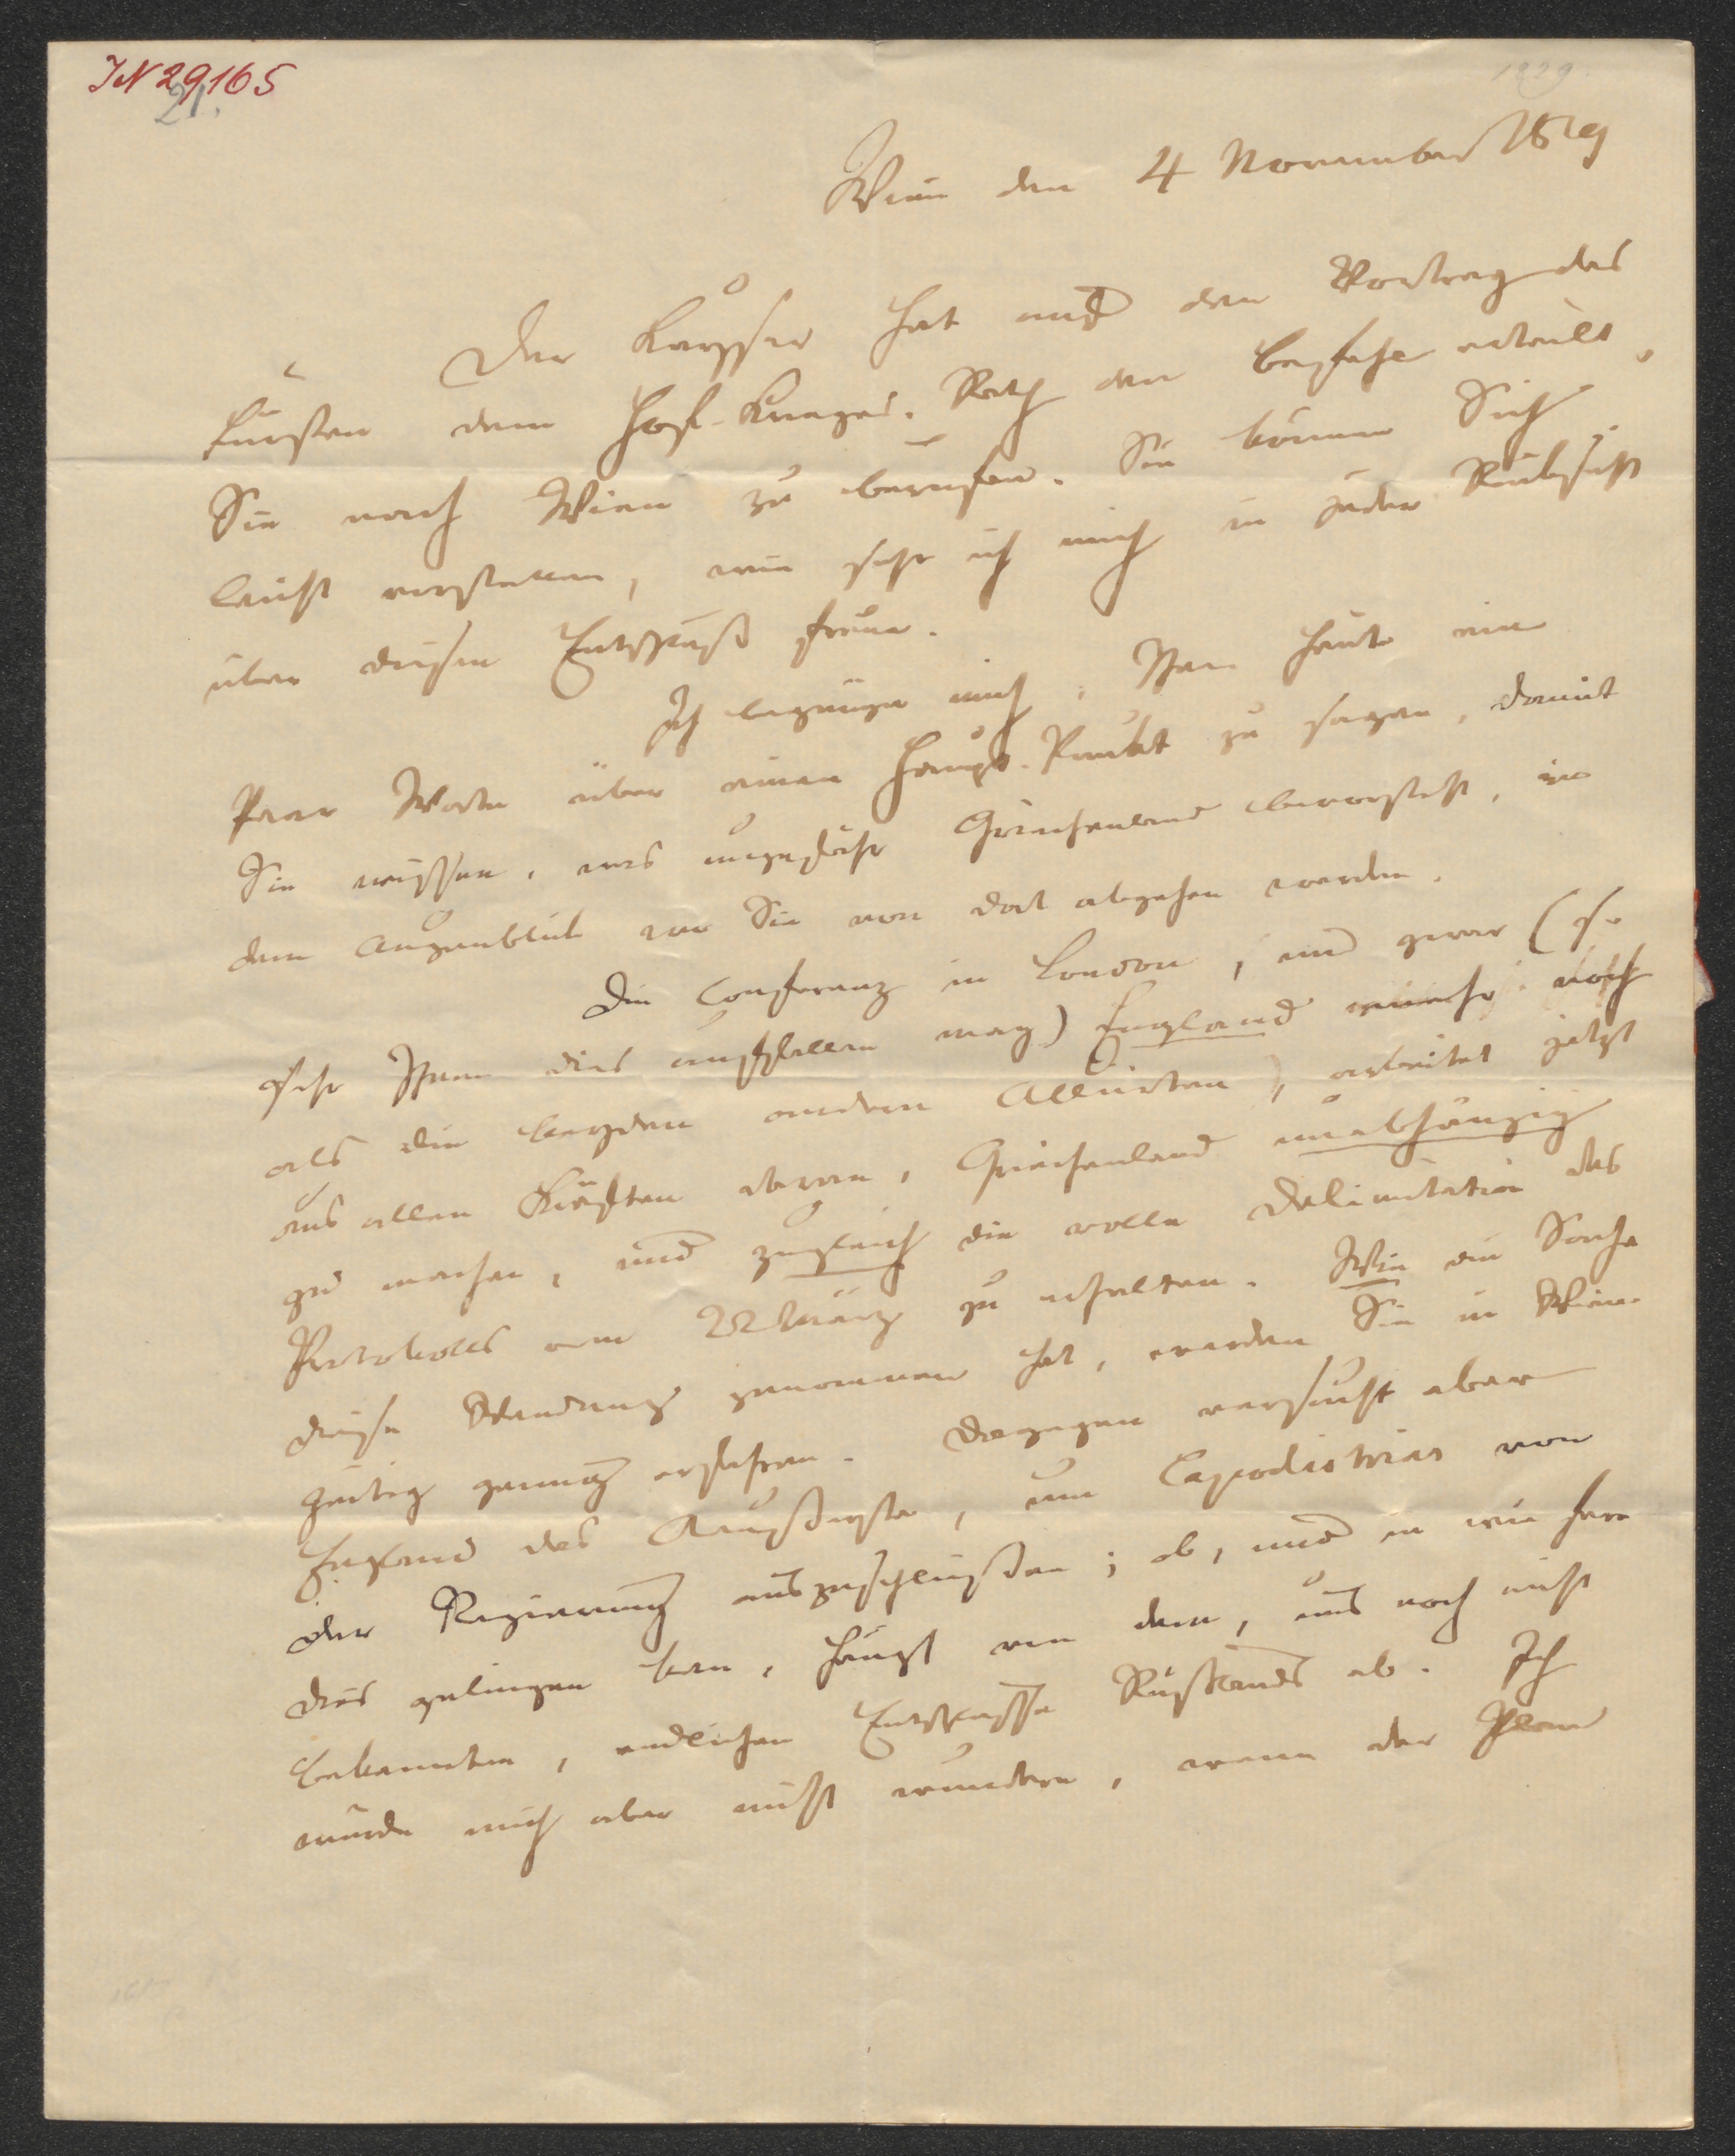 IN 29165
21.
1829.
Wien den 4 November 1829
Der Kaysser hat auf den Vortrag des
Fürsten dem Hof-Kriegs-Rath den Befehl ertheilt,
Sie nach Wien zu berufen. Sie können Sich
leicht vorstellen, wie sehr ich mich in jeder Rücksicht
über diesen Entschluß freue.
Ich begnüge mich, Ihnen heute ein
Paar Worte über einen Haupt-Punkt zu sagen, damit
Sie wissen, was ungefähr Griechenland bevorsteht, in
dem Augenblick wo Sie von dort abgehen werden.
Die Conferenz in London, und zwar (so
sehr Ihnen dies auffallen mag) England mehr noch
als die beyden andern Alliirten, arbeitet jetzt
aus allen Kräften daran, Griechenland unabhängig
zu machen, und zugleich die volle Delimitation des
Protokolls vom 22 März zu erhalten. Wie die Sache
diese Wendung genommen hat, werden Sie in Wien
zeitig genug erfahren. Dagegen versucht aber
England das Äußerste, um Capodistrias von
der Regierung auszuschließen; ob, und in wie fern
dies gelingen kan, hängt von dem, uns noch nicht
bekannten, endlichen Entschlusse Rußlands ab. Ich
würde mich aber nicht wundern, wenn der Plan